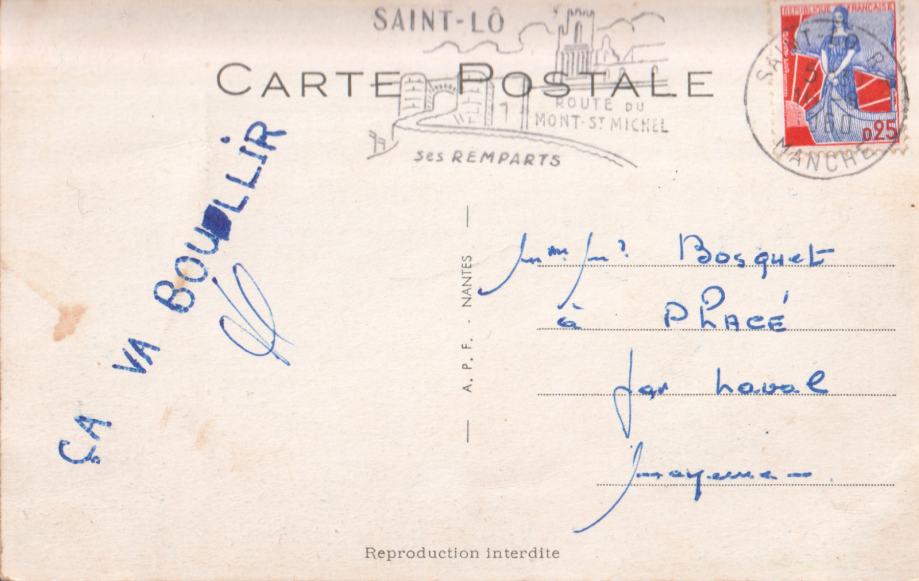 SAINT-LÔ
CARTE POSTALE
ROUTE DU
MONT-ST MICHEL
SES REMPARTS
REPUBLIQUE FRANÇAISE
0,25
SAINT-LO
5
60
MANCHE
ÇA VA BOUILLIR
A. P. F. - NANTES
Mme Mr Bosquet
à PLACÉ
par Laval
Mayenne
Reproduction interdite